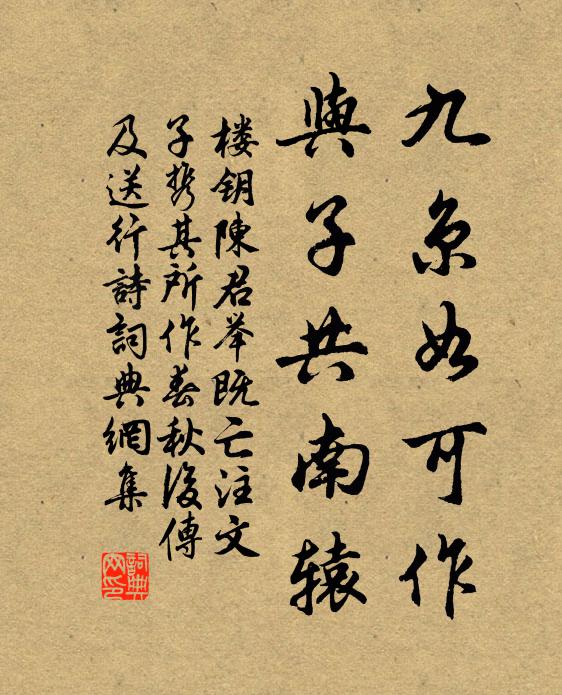 九京如可作
與子共南辕
楼钥陳君举既亡注文
子携其所作春秋後傳
及送行詩詞典網集
詞典网印